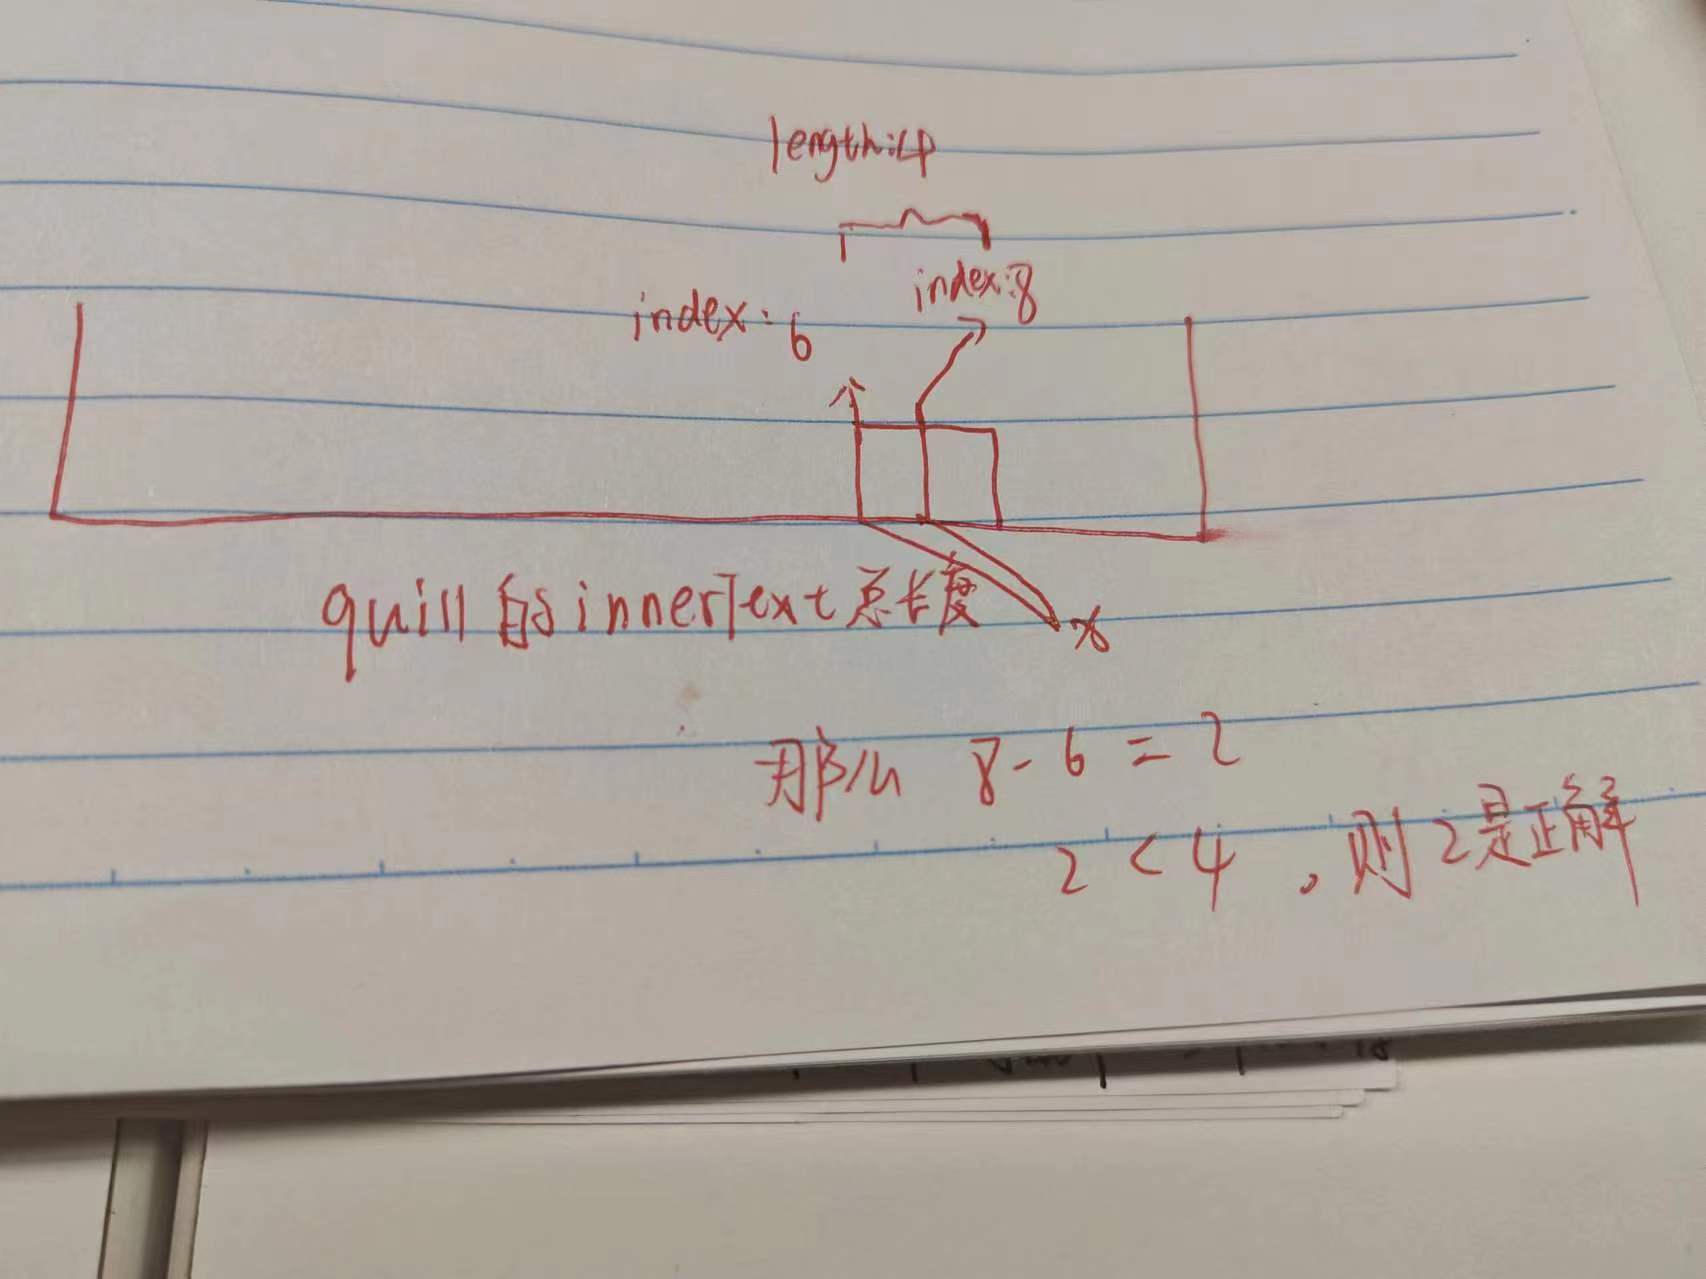 length:4
index:8
index:6
quill的innerText总长度
x
那么 8-6=2
2<4,则2是正解